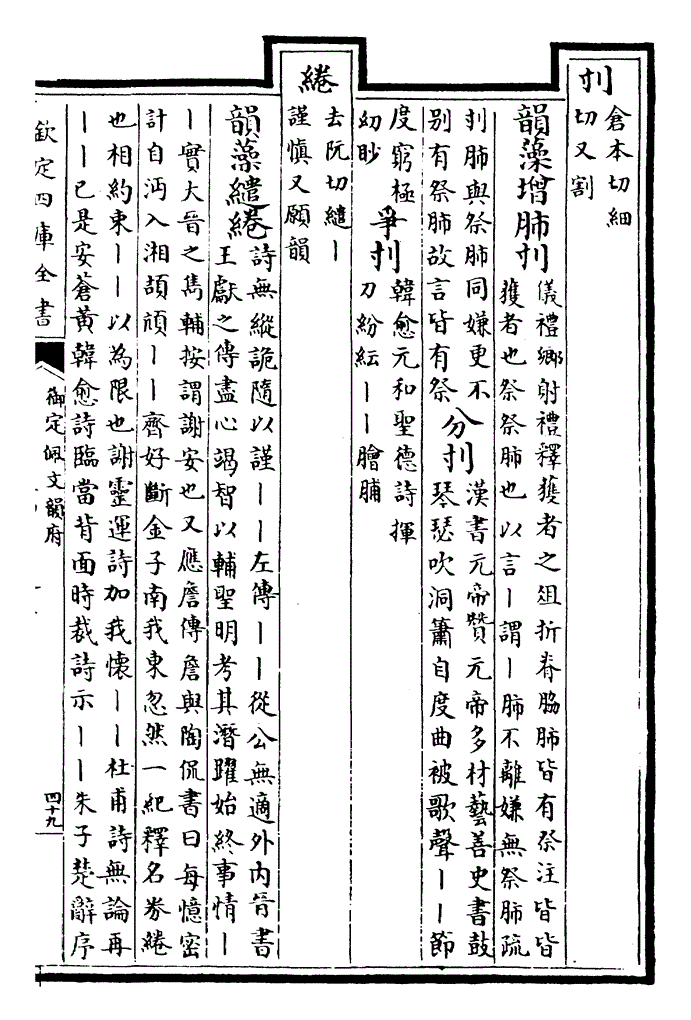 刌
倉本切細
切又割
韻藻增肺刌
儀禮鄉射禮釋獲者之俎折脊脇肺皆有祭注皆皆
獲者也祭祭肺也以言丨謂丨肺不離嫌無祭肺疏
刌肺與祭肺同嫌更不
别有祭肺故言皆有祭
分刌
漢書元帝贊元帝多材藝善史書鼓
琴瑟吹洞簫自度曲被歌聲丨丨節
度窮極
幼眇
爭刌
韓愈元和聖德詩揮
刀紛紜丨丨膾脯
綣
去阮切繾丨
謹慎又願韻
韻藻繾綣
詩無縱詭隨以謹丨丨左傳丨丨從公無適外内晉書
王獻之傳盡心竭智以輔聖明考其潛躍始終事情丨
丨實大晉之雋輔按謂謝安也又應詹傳詹與陶侃書曰每憶密
計自沔入湘頡頏丨丨齊好斷金子南我東忽然一紀釋名劵綣
也相約束丨丨以為限也謝靈運詩加我懷丨丨杜甫詩無論再
丨丨已是安蒼黄韓愈詩臨當背面時裁詩示丨丨朱子楚辭序
欽定四庫全書
御定佩文韻府
四十九